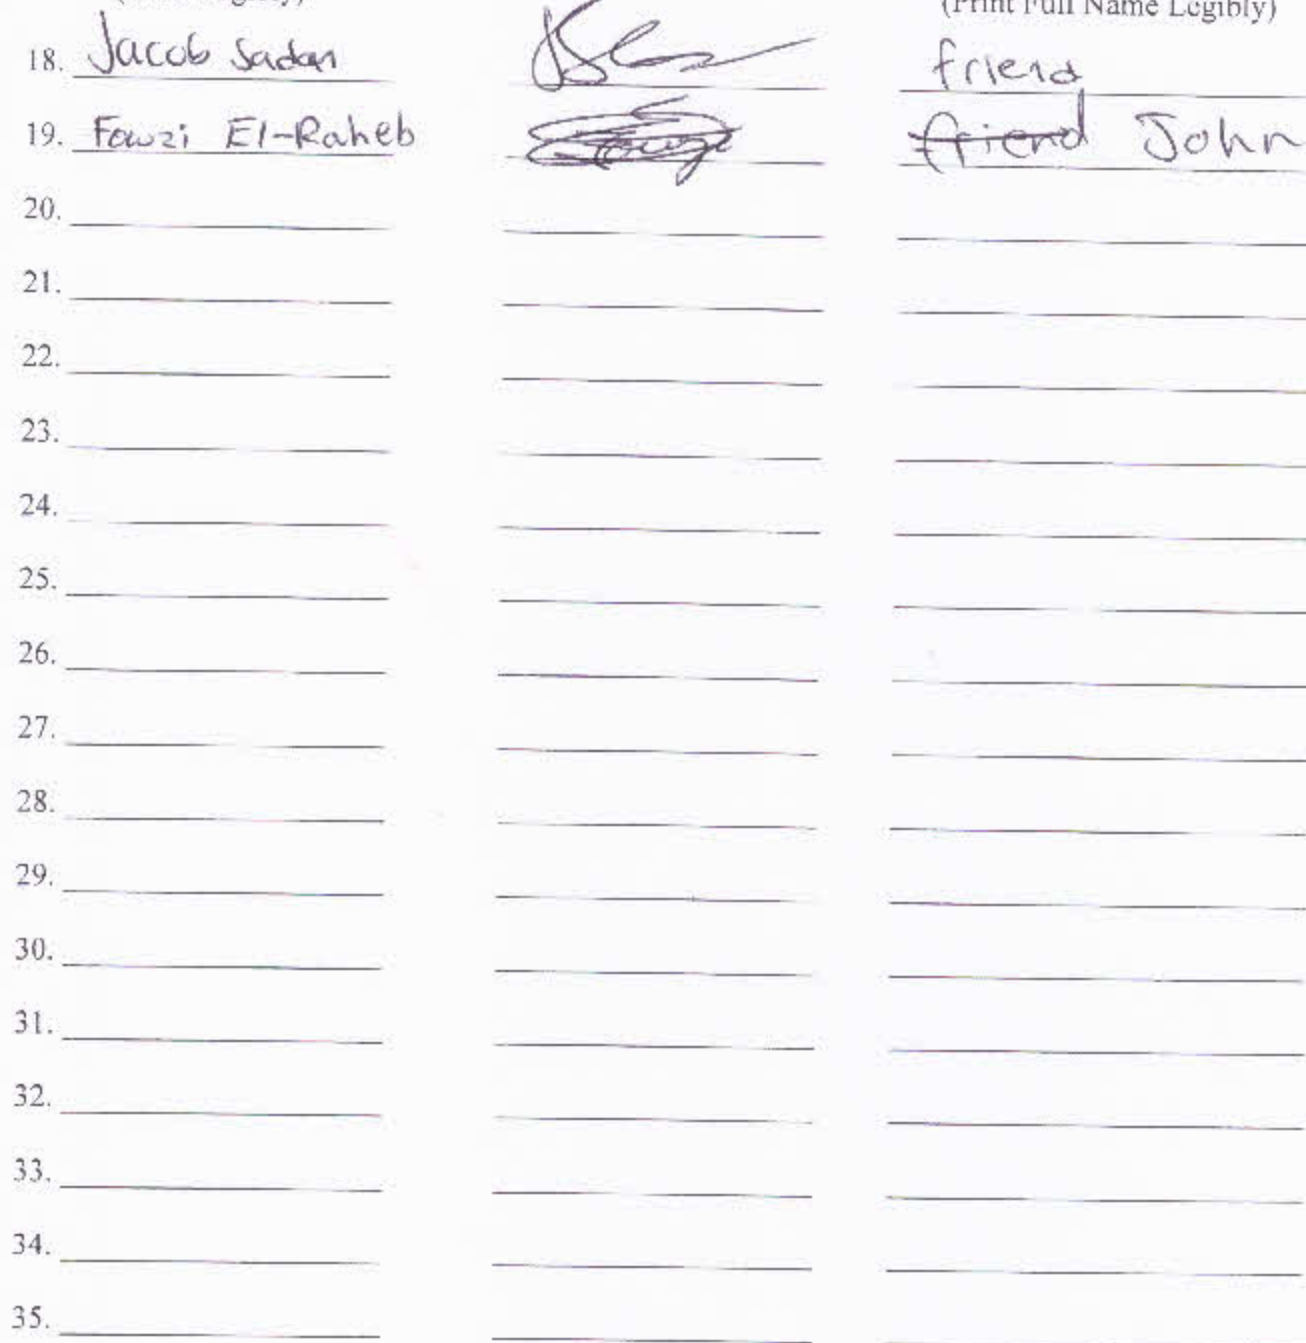 (Print Full Name Legibly)
18. Jacob Sadan friend
19. Fawzi El-Raheb friend John
20.
21.
22.
23.
24.
25.
26.
27.
28.
29.
30.
31.
32.
33.
34.
35.